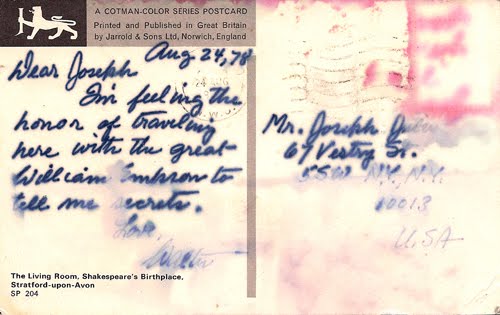 A COTMAN-COLOR SERIES POSTCARD
Printed and Published in Great Britain
by Jarrold & Sons Ltd, Norwich, England
Aug 24, 78
Dear Joseph
I'm feeling the
honor of traveling
here with the great
William Empson to
tell me secrets.
Love,
The Living Room, Shakespeare's Birthplace,
Stratford-upon-Avon
SP 204
24 AUG
Mr. Joseph
67 Vestry St.
N.Y. N.Y.
10013
USA